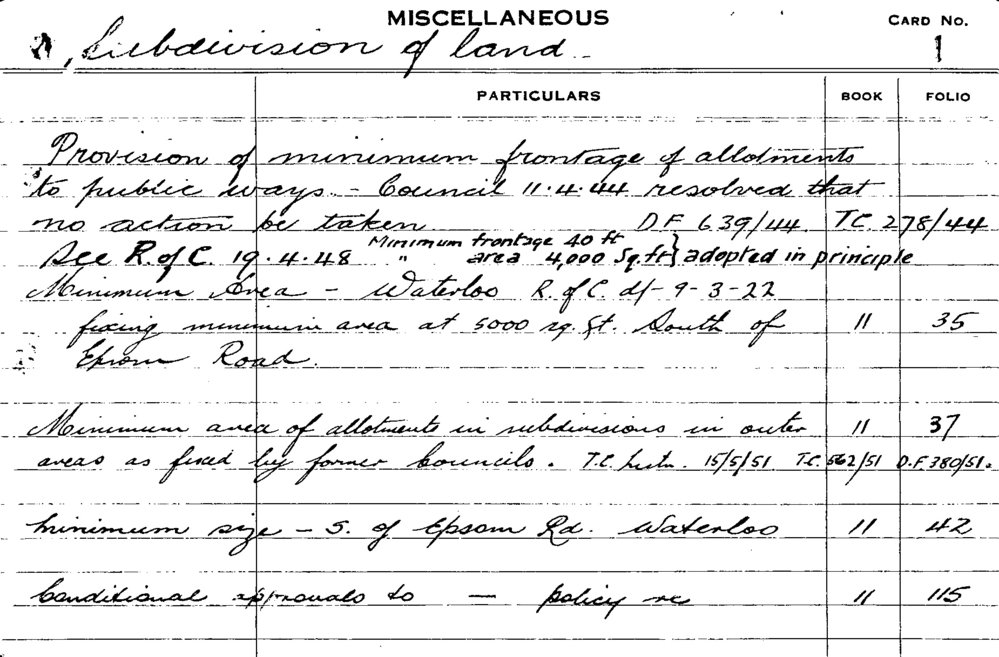 MISCELLANEOUS
CARD NO.
, Subdivision of land
1
PARTICULARS BOOK FOLIO
Provision of minimum frontage of allotments
to public ways - Council 11.4.44 resolved that
no action be taken D.F. 639/44 T.C. 278/44
Minimum frontage 40 ft
See R. of C. 19.4.48 " area 4,000 Sq.ft } adopted in principle
Minimum Area - Waterloo R. of C. df- 9-3-22
fixing minimum area at 5000 sq. ft. South of 11 35
Epsom Road.
Minimum area of allotments in subdivisions in outer 11 37
areas as fixed by former Councils. T.C. 15/5/51 T.C. 562/51 D.F. 380/51.
Minimum size - S. of Epsom Rd. Waterloo 11 42
Conditional approvals to — policy re 11 115